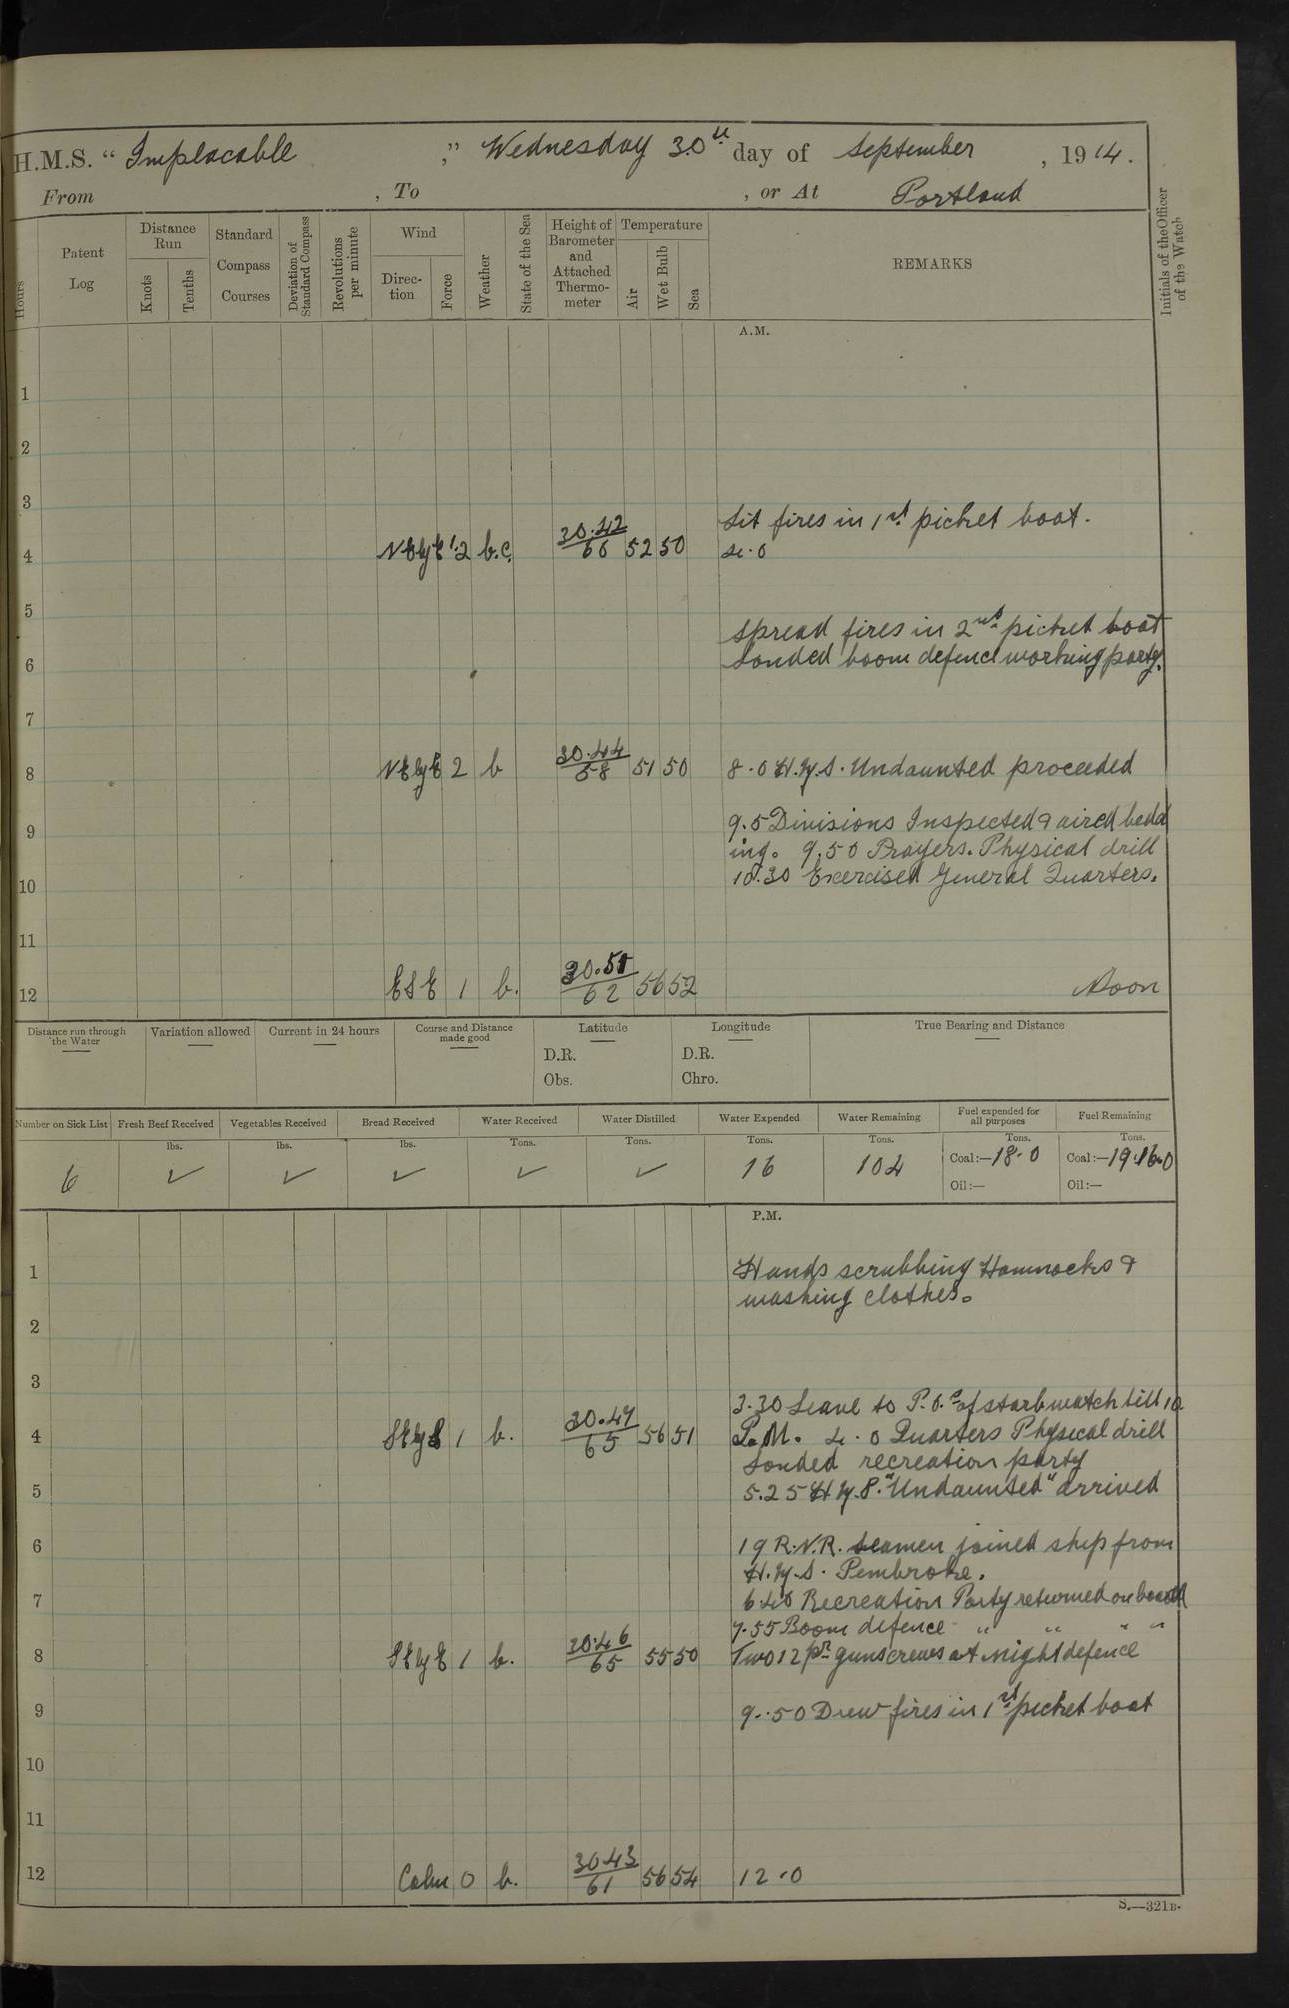 H.M.S. “ Implacable ,” Wednesday 30th day of September , 1914.
From , To , or At Portland
Hours
Patent Log
Distance Run
Knots
Tenths
Standard Compass Courses
Deviation of Standard Compass
Revolutions per minute
Wind
Direc-tion
Force
Weather
State of the Sea
Height of Barometer and Attached Thermo-meter
Temperature
Air
Wet Bulb
Sea
REMARKS
Initials of the Officer of the Watch
A.M.
1
2
3
Lit fires in 1st picket boat.
4 NEbyE 1.2 b.c. 30.42/66 52 50 4.0
5
Spread fires in 2nd picket boat
6 Landed boom defence working party.
7
8 NEbyE 2 b 30.44/58 51 50 8.0 H.M.S. Undaunted proceeded
9 9.5 Divisions Inspected & aired bedd
ing. 9.50 Prayers. Physical drill
10 10.30 Exercised General Quarters.
11
12 ESE 1 b. 30.51/62 56 52 Noon
Distance run through the Water
Variation allowed
Current in 24 hours
Course and Distance made good
Latitude
D.R.
Obs.
Longitude
D.R.
Chro.
True Bearing and Distance
Number on Sick List Fresh Beef Received Vegetables Received Bread Received Water Received Water Distilled Water Expended Water Remaining Fuel expended for all purposes Fuel Remaining
lbs. lbs. lbs. Tons. Tons. Tons. Tons. Tons. Tons.
6 ✓ ✓ ✓ ✓ ✓ 16 104 Coal:—18.0 Coal:—19.16.0
Oil:— Oil:—
P.M.
1 Hands scrubbing Hammocks &
washing clothes.
2
3
3.30 Leave to P.O.s of starb watch till 10
4 SEbyE 1 b. 30.47/65 56 51 P.M. 4.0 Quarters Physical drill
Landed recreation party
5 5.25 H.M.S. "Undaunted" arrived
6 19 R.N.R. seamen joined ship from
H.M.S. Pembroke.
7 6.40 Recreation Party returned on board
7.55 Boom defence " " " "
8 SEbyE 1 b. 30.46/65 55 50 Two 12 pr guns crews at night defence
9 9.50 Drew fires in 1st picket boat
10
11
12 Calm 0 b. 30.43/61 56 54 12.0
S.—321B.